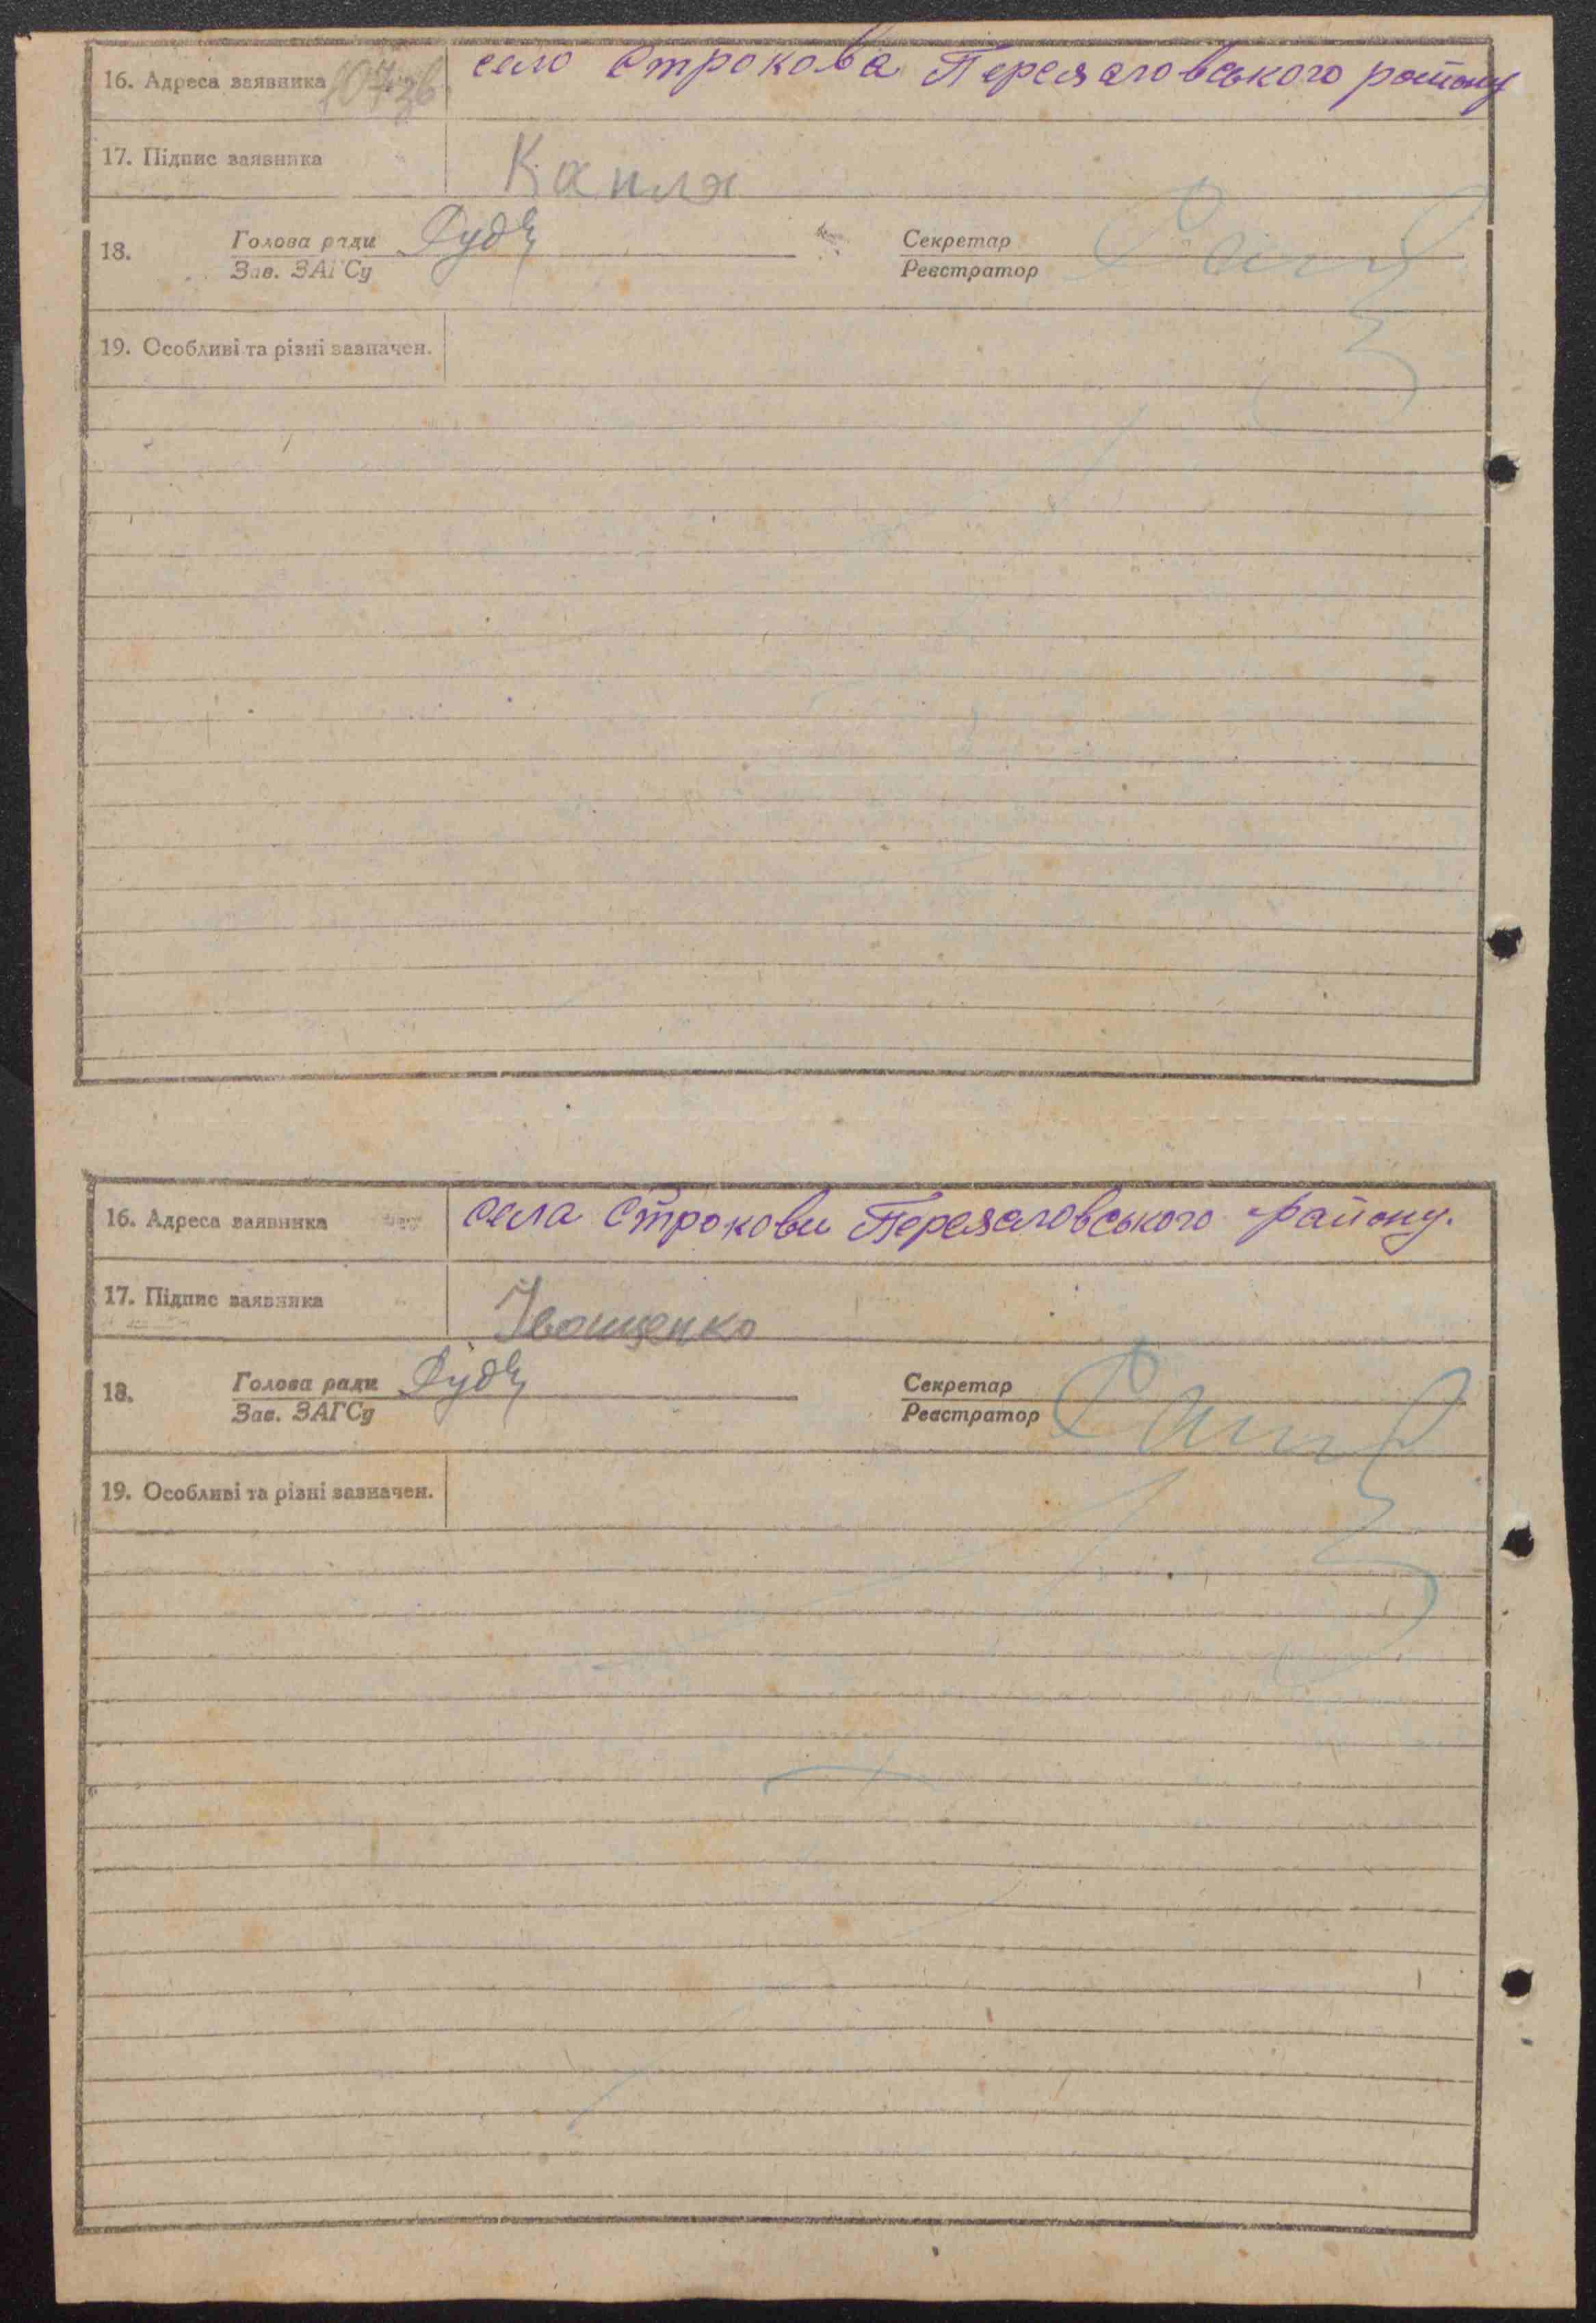 16. Адреса заявника 107зв село Строкова Переяаловського району
17. Підпис заявника Капля
18. Голова ради Рудь Секретар
Зав. ЗАГСу Реєстратор
19. Особливі та різні зазначен.
16. Адреса заявника села Строкови Переяаловського району.
17. Підпис заявника Іващенко
18. Голова ради Рудь Секретар
Зав. ЗАГСу Реєстратор
19. Особливі та різні зазначен.